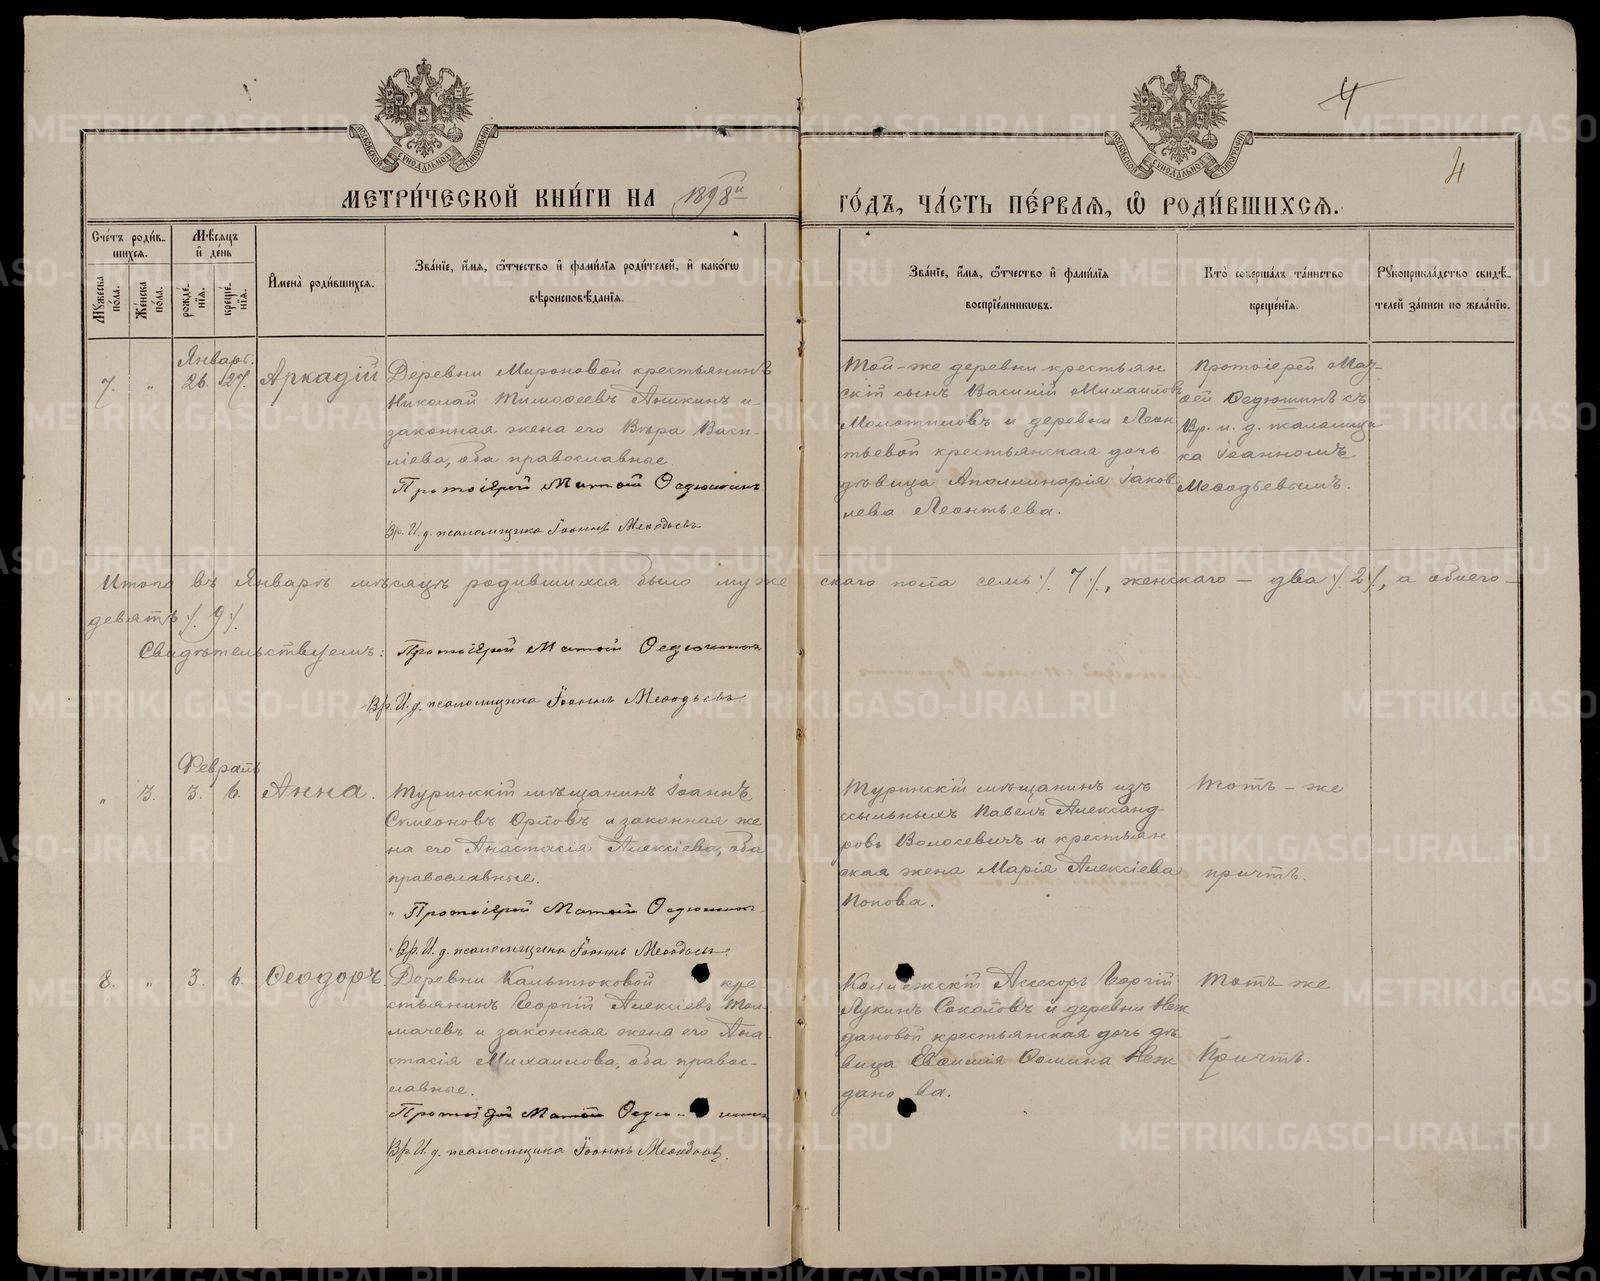 4
4
МОСКОВСКОЙ СѴНОДАЛЬНОЙ ТИПОГРАФІИ
МОСКОВСКОЙ СѴНОДАЛЬНОЙ ТИПОГРАФІИ
МЕТРИ́ЧЕСКОЙ КНИ́ГИ НА 1898й ГО́ДЪ, ЧА́СТЬ ПЕ́РВАЯ, Ѡ РОДИ́ВШИХСЯ.
Сче́тъ роди́в-
шихся.
Мꙋ́жеска по́ла.
Же́нска по́ла.
Мѣ́сяцъ и҆ де́нь
рожде́нїѧ.
креще́нїѧ.
И҆мена̀ роди́вшихся.
Зва́нїе, и҆́мѧ, ѻ҆́тчество и҆ фами́лїѧ роди́телей, и҆ како́гѡ
вѣроисповѣ́данїѧ.
Зва́нїе, и҆́мѧ, ѻ҆́тчество и҆ фами́лїѧ
воспрїе́мниковъ.
Кто̀ соверша́лъ та́инство
креще́нїѧ.
Рꙋкоприкла́дство свидѣ́-
телей за́писи по жела́нїю.
Январь.
7. " 26. 27. Аркадій
Деревни Мироновой крестьянинъ
Николай Тимоѳеевъ Аникинъ и
законная жена его Вѣра Васи-
ліева, оба православные.
Протоіерей Матѳій Ѳедюшинъ
Вр. И. д. псаломщика Іоаннъ Меѳодьевъ
Той-же деревни крестьян
скій сынъ Василій Михаиловъ
Молотиловъ и деревни Леон
тьевой крестьянская дочь
дѣвица Аполлинарія Іаков
лева Леонтьева.
Протоіерей Мат-
ѳей Ѳедюшинъ съ
Вр. и. д. псаломщи
ка Іоанномъ
Меѳодьевымъ.
Итого въ Январѣ мѣсяцѣ родившихся было муже скаго пола семь ./. 7 ./., женскаго — два ./. 2 ./., а обоего —
девять ./. 9 ./.
Свидѣтельствуемъ: Протоіерей Матѳій Ѳедюшинъ
Вр. И. д. псаломщика Іоаннъ Меѳодьевъ
Февраль
" 3. 3. 6. Анна.
Туринскій мѣщанинъ Іоаннъ
Симеоновъ Орловъ и законная же
на его Анастасія Алексіева, оба
православные.
" Протоіерей Матѳій Ѳедюшинъ
" Вр. И. д. псаломщика Іоаннъ Меѳодьевъ
Туринскій мѣщанинъ изъ
ссыльныхъ Павелъ Александ-
ровъ Волосевичъ и крестьян
ская жена Марія Алексіева
Попова.
Тотъ-же
причтъ.
8. " 3. 6. Ѳеодоръ
Деревни Калтюковой кре
стьянинъ Георгій Алексіевъ Тол
мачевъ и законная жена его Ана-
стасія Михаилова, оба правос-
лавные.
Протоіерей Матѳій Ѳедюшинъ
Вр. И. д. псаломщика Іоаннъ Меѳодьевъ
Коллежскій Ассесоръ Георгій
Лукинъ Соколовъ и деревни Неж
дановой крестьянская дочь дѣ
вица Евѳимія Ѳомина Неж
данова.
Тотъ же
Причтъ.